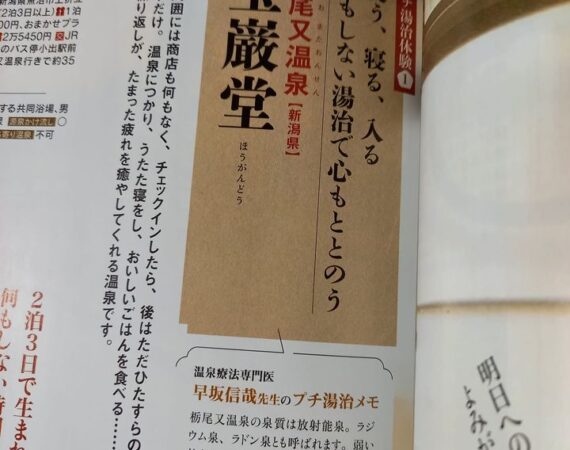 プチ湯治体験1
う、寝る、入る
もしない湯治で心もととのう
尾又温泉【新潟県】
おまたおんせん
宝巌堂
ほうがんどう
囲には商店も何もなく、チェックインしたら、後はただひたすらの
だけ。温泉につかり、うたた寝をし、おいしいごはんを食べる……
り返しが、たまった疲れを癒やしてくれる温泉です。
温泉療法専門医
早坂信哉先生のプチ湯治メモ
栃尾又温泉の泉質は放射能泉。ラジ
ウム泉、ラドン泉とも呼ばれます。弱い
2泊3日で生まれ
何もしない時間
2泊以上)1泊
00円、おまかせプラ
2万5450円 JR
のバス停小出駅前
又温泉行きで約35
する共同浴場、男
泉 源泉かけ流し○
寄り温泉 不可
明日への
よみが